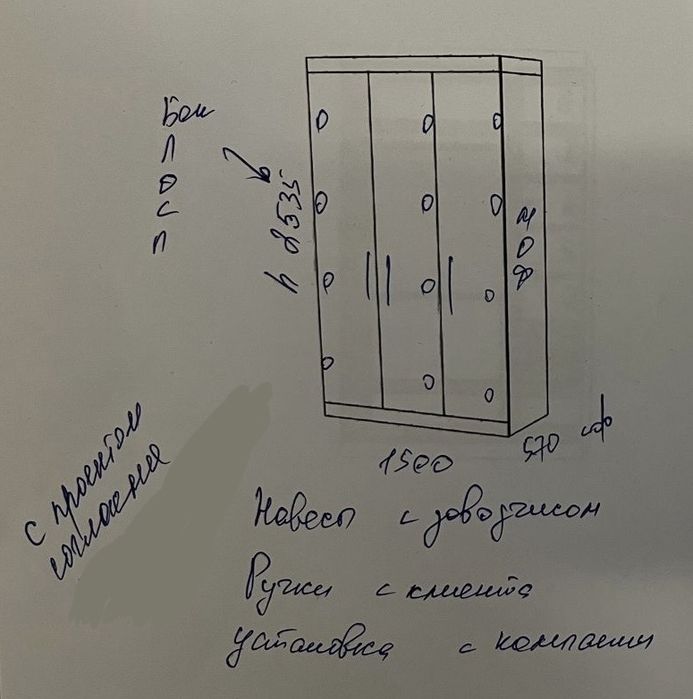 Бок
Л
Д
С
П
h 2535
МДФ
1500
570
с проектом
согласна
Навесы с доводчиком
Ручки с клиента
установка с компании